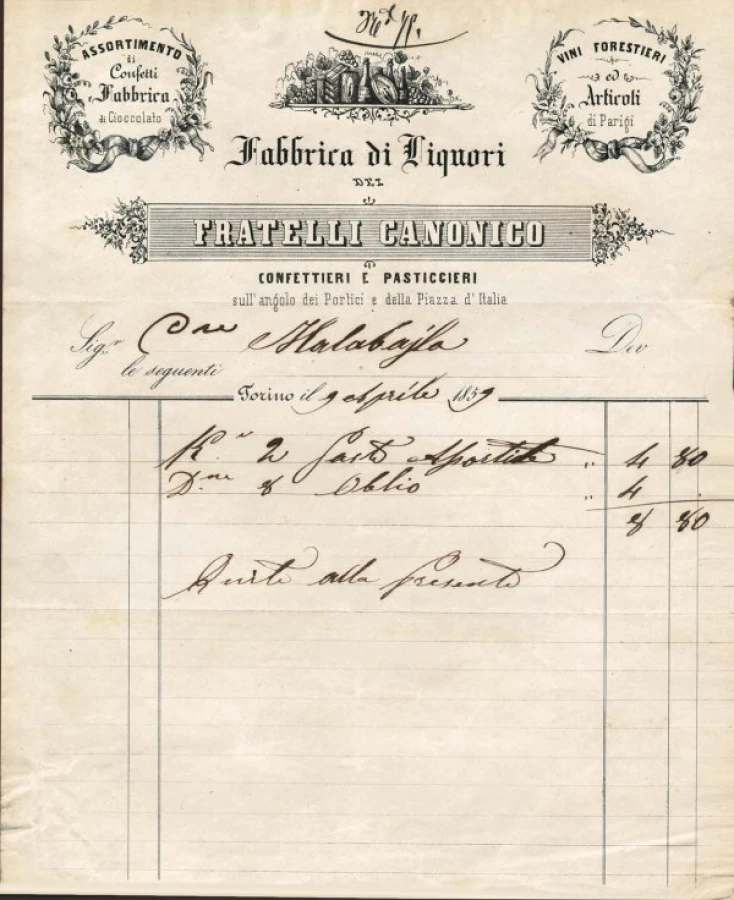 ASSORTIMENTO
di
Confetti
Fabbrica
di Cioccolato
VINI FORESTIERI
ed
Articoli
di Parigi
Fabbrica di Liquori
DEI
FRATELLI CANONICO
CONFETTIERI E PASTICCIERI
sull'angolo dei Portici e della Piazza d'Italia
Sig.r Malabajla Dev
le seguenti
Torino il 9 Aprile 1859
2 Paste Assortite " 4 80
D.ne 8 Oblio " 4 .
8 80
alla presente